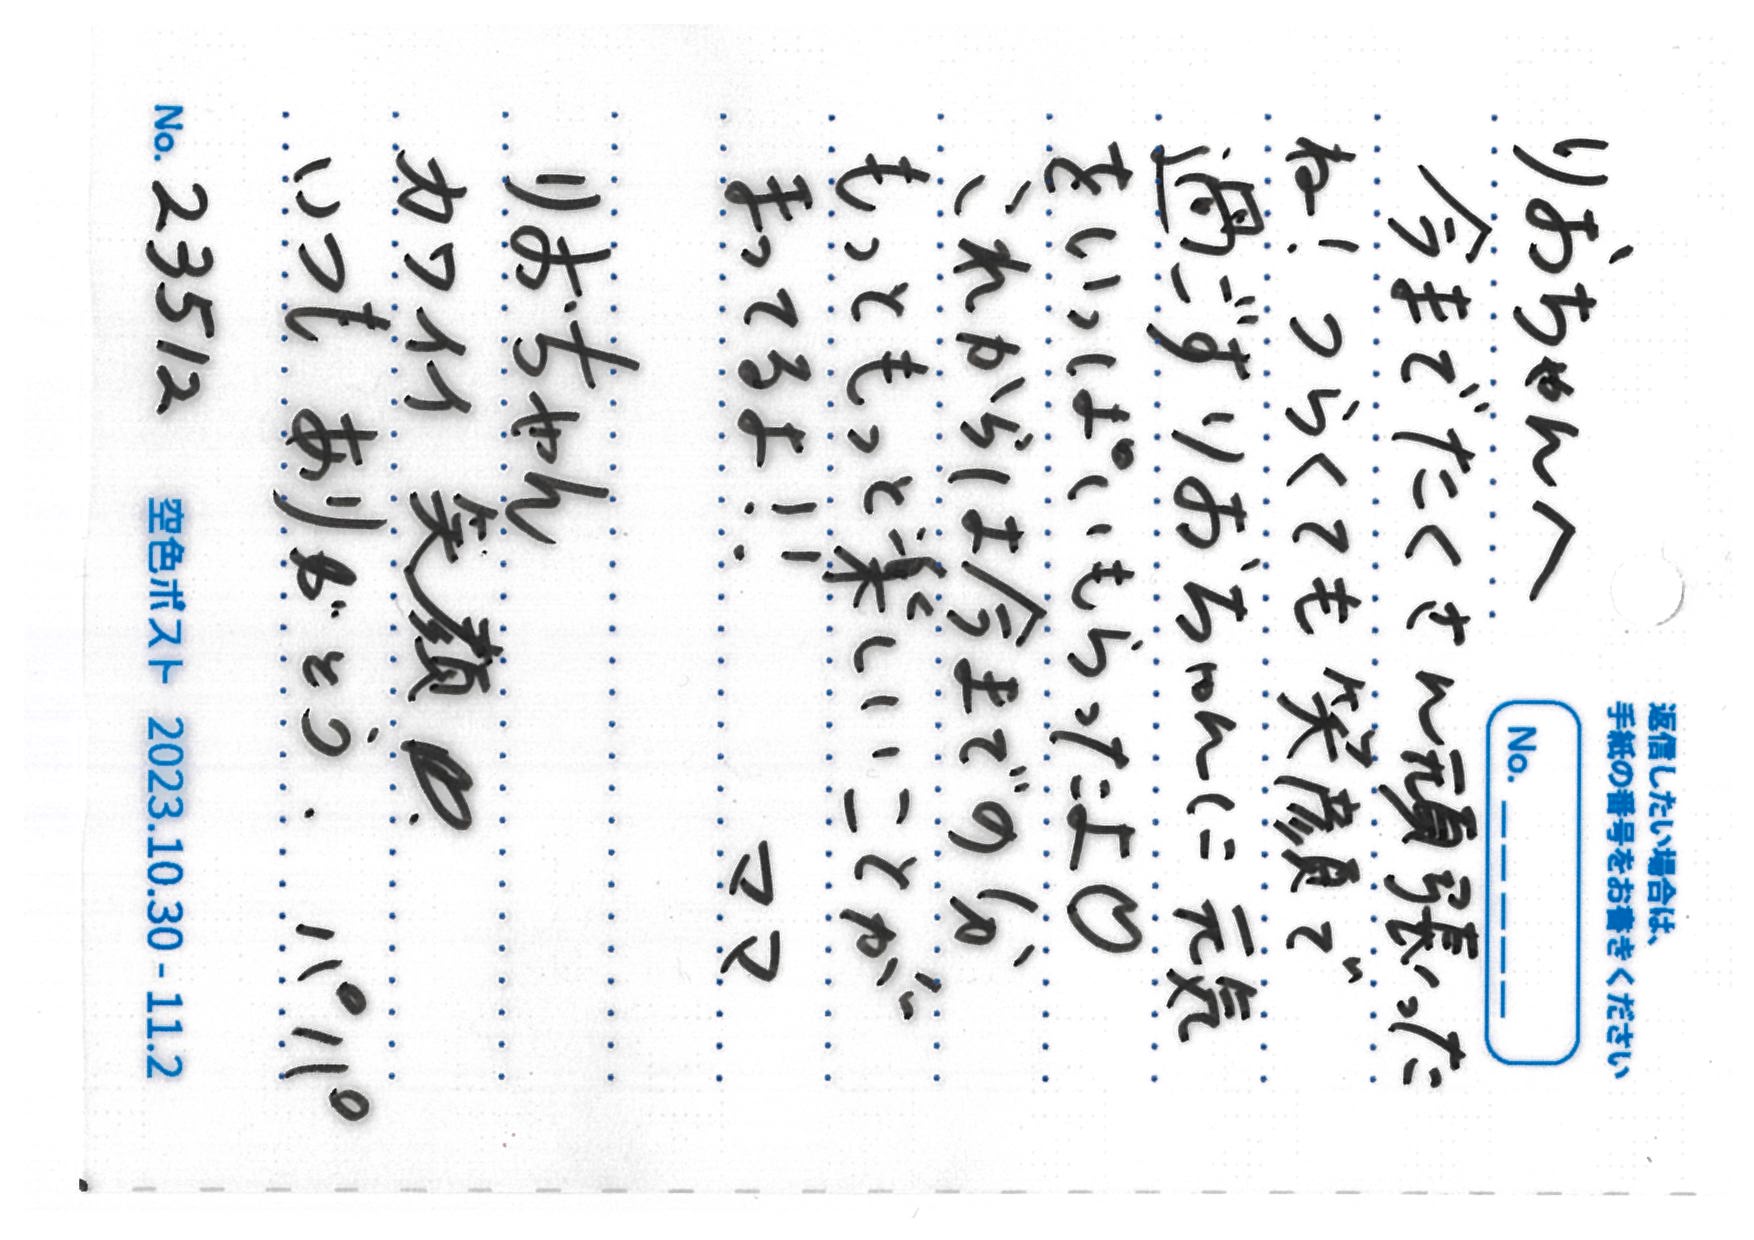 返信したい場合は、
手紙の番号をお書きください
No. _ _ _ _ _
りおちゃんへ
今までたくさん頑張った
ね！つらくても笑顔で
過ごすりおちゃんに元気
をいっぱいもらったよ♡
これからは今までの分
もっともっと楽しいことが
まってるよ!! ママ
りおちゃん
カワイイ 笑顔♡.
いつも ありがとう. パパ
No. 23512 空色ポスト 2023.10.30 - 11.2